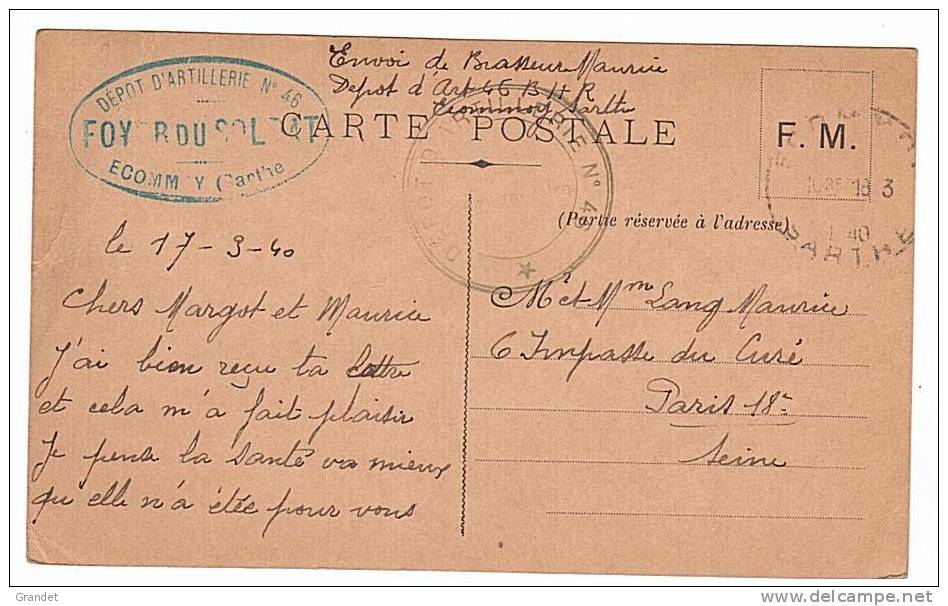 Envoi de Brasseur Maurice
Depot d'Art 46 B H R
Ecommoy Sarthe
DÉPOT D'ARTILLERIE N° 46
FOYER DU SOLDAT
ECOMMOY (Sarthe
CARTE POSTALE
F. M.
(Partie réservée à l'adresse)
DÉPOT D'ARTILLERIE N° 46
18 3
40
SARTHE
le 17-3-40
Chers Margot et Maurice
J'ai bien reçu ta lettre
et cela m'a fait plaisir
Je pense la santé va mieux
qu elle n'a étée pour vous
Mr et Mm Lang Maurice
6 Impasse du Curé
Paris 18e
Seine
Grandet
www.delcampe.net